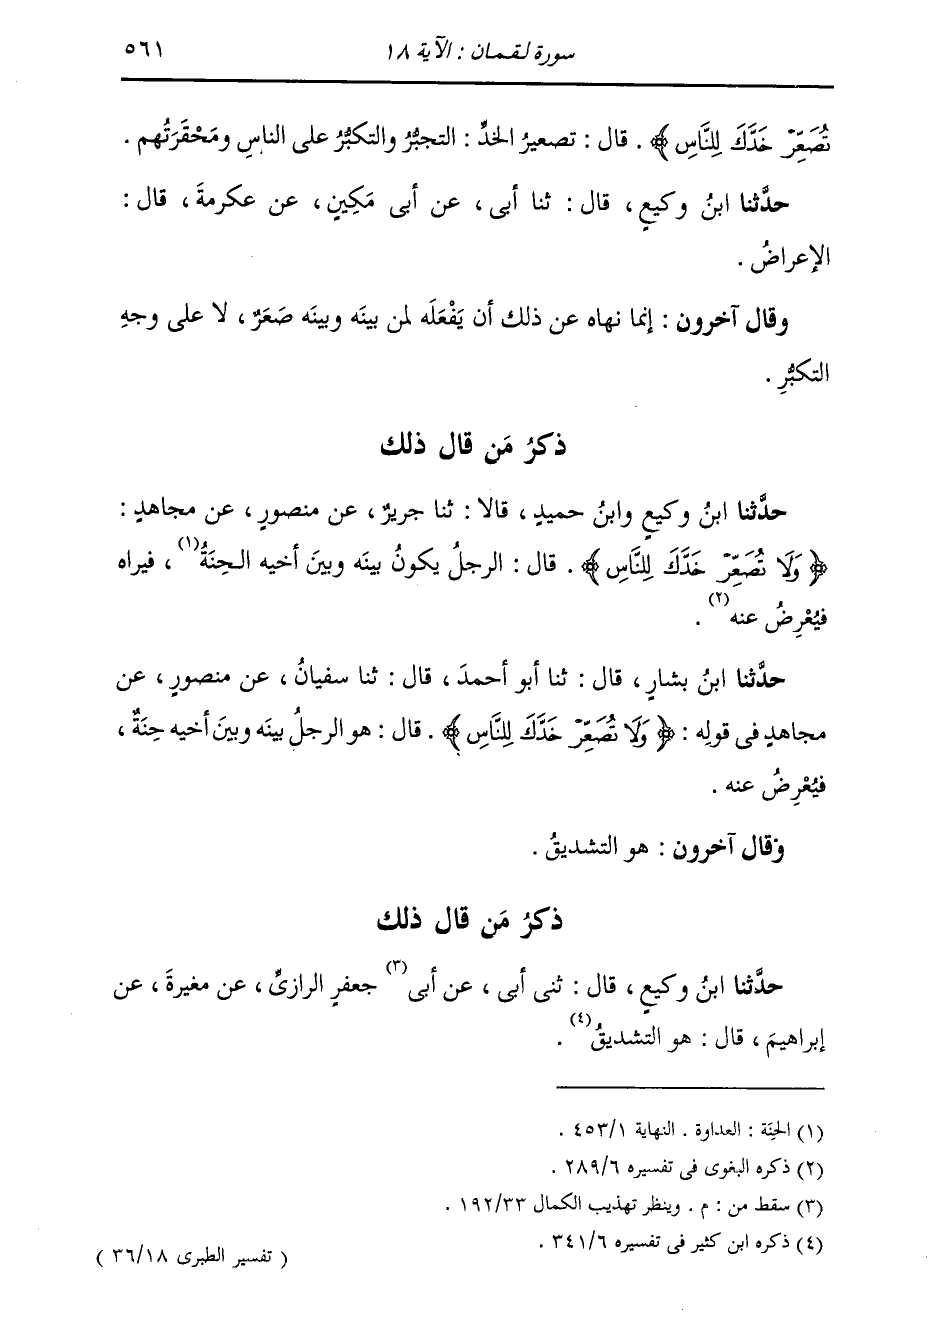 سورة لقمان : الآية ١٨
٥٦١
تُصَعِّرْ خَدَّكَ لِلنَّاسِ ﴾ . قال : تصعيرُ الخدِّ : التجبُّرُ والتكبُّرُ على الناسِ ومَحْقَرَتُهم .
حدَّثنا ابنُ وكيعٍ ، قال : ثنا أبى ، عن أبى مَكِينٍ ، عن عكرمةَ ، قال :
الإعراضُ .
وقال آخرون : إنما نهاه عن ذلك أن يَفْعَلَه لمن بينَه وبينَه صَعَرٌ ، لا على وجهِ
التكبُّرِ .
ذكرُ مَن قال ذلك
حدَّثنا ابنُ وكيعٍ وابنُ حميدٍ ، قالا : ثنا جريرٌ ، عن منصورٍ ، عن مجاهدٍ :
﴿ وَلَا تُصَعِّرْ خَدَّكَ لِلنَّاسِ ﴾ . قال : الرجلُ يكونُ بينَه وبينَ أخيه الحِنَةُ(١) ، فيراه
فيُعْرِضُ عنه(٢) .
حدَّثنا ابنُ بشارٍ ، قال : ثنا أبو أحمدَ ، قال : ثنا سفيانُ ، عن منصورٍ ، عن
مجاهدٍ فى قولِه : ﴿ وَلَا تُصَعِّرْ خَدَّكَ لِلنَّاسِ ﴾ . قال : هو الرجلُ بينَه وبينَ أخيه حِنَةٌ ،
فيُعْرِضُ عنه .
وقال آخرون : هو التشديقُ .
ذكرُ مَن قال ذلك
حدَّثنا ابنُ وكيعٍ ، قال : ثنى أبى ، عن أبى(٣) جعفرٍ الرازىِّ ، عن مغيرةَ ، عن
إبراهيمَ ، قال : هو التشديقُ(٤) .
(١) الحِنَة : العداوة . النهاية ٤٥٣/١ .
(٢) ذكره البغوى فى تفسيره ٢٨٩/٦ .
(٣) سقط من : م . وينظر تهذيب الكمال ١٩٢/٣٣ .
(٤) ذكره ابن كثير فى تفسيره ٣٤١/٦ .
( تفسير الطبرى ٣٦/١٨ )